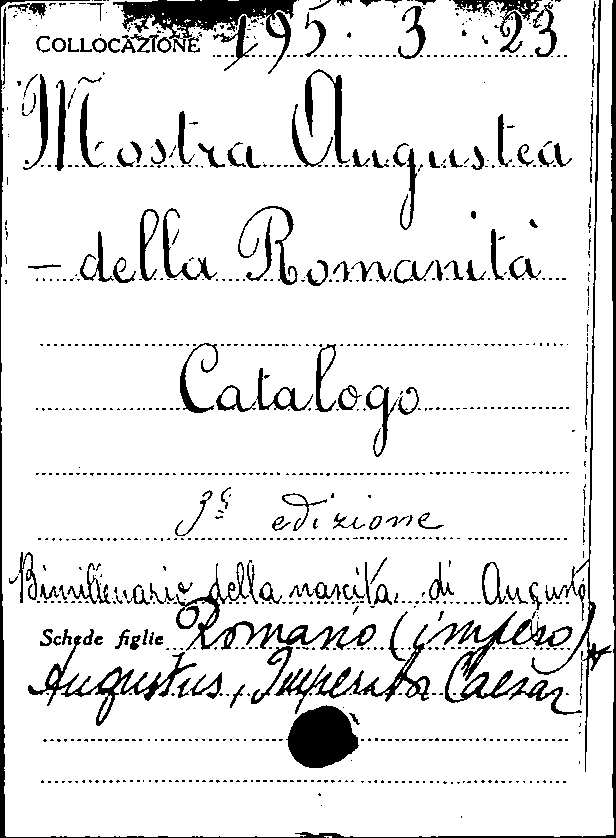 COLLOCAZIONE 195. 3. 23
Mostra Augustea
- della Romanità
Catalogo
3ª edizione
Bimillenario della nascita di Augusto
Schede figlie Romano (impero)
Augustus, Imperator Caesar